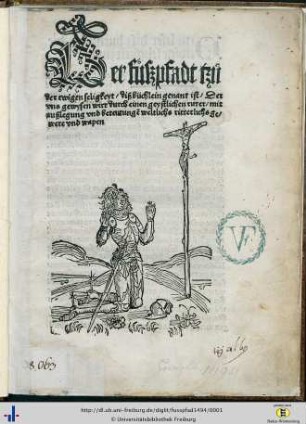 Der fußpfadt tzů
der ewigen seligkeyt / diß büchlein genant ist / Der
vns gewysen wirt durch einen geystlichen ritter / mit
außlegung vnd betewung weltlichs ritterlichs ge⸗
were vnd wapen
VF
063
http://dl.ub.uni-freiburg.de/diglit/fusspfad1494/0001
© Universitätsbibliothek Freiburg